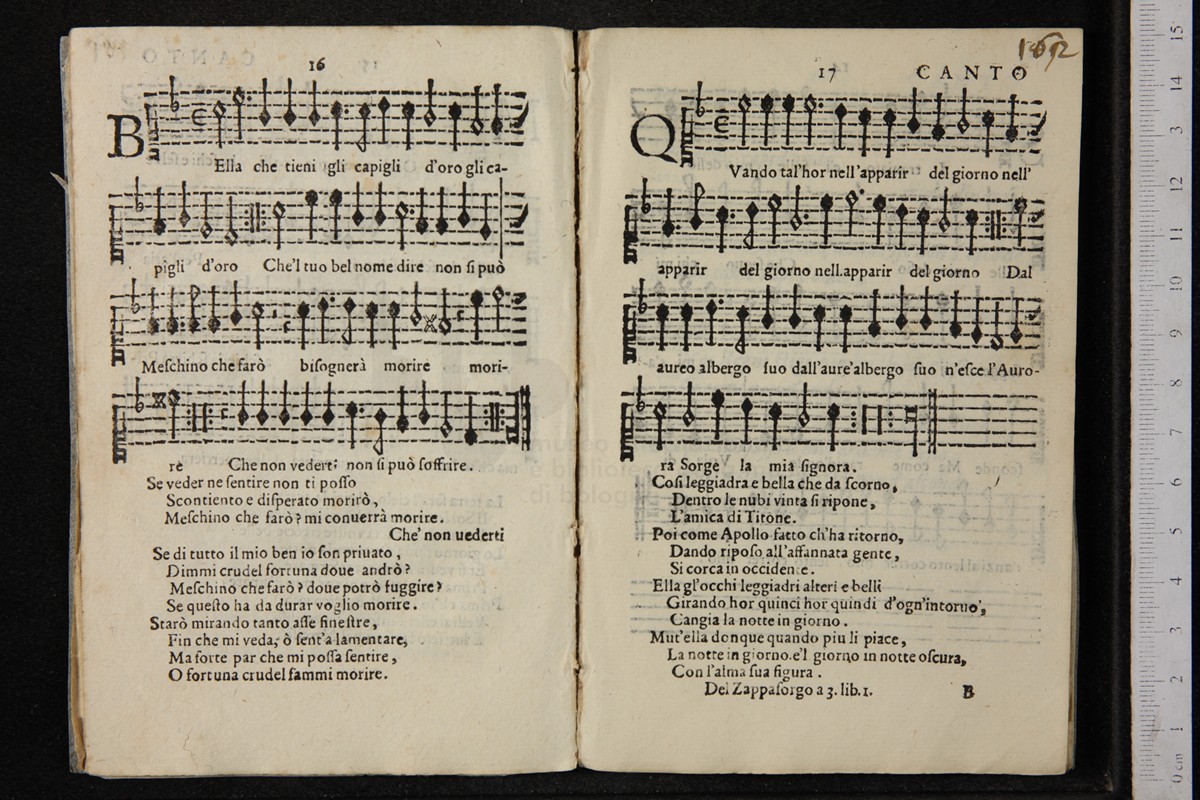 16
BElla che tieni gli capigli d'oro gli ca-
pigli d'oro Che'l tuo bel nome dire non si può
Meſchino che farò biſognerà morire mori-
re Che non vederti non ſi può ſoffrire.
Se veder ne ſentire non ti poſſo
Scontiento e diſperato morirò,
Meſchino che farò? mi conuerrà morire.
Che' non uederti
Se di tutto il mio ben io ſon priuato,
Dimmi crudel fortuna doue andrò?
Meſchino che farò? doue potrò fuggire?
Se queſto ha da durar voglio morire.
Starò mirando tanto aſſe fineſtre,
Fin che mi veda, ò ſent'a lamentare,
Ma forte par che mi poſſa ſentire,
O fortuna crudel fammi morire.
1692
17 CANTO
QVando tal'hor nell'apparir del giorno nell'
apparir del giorno nell.apparir del giorno Dal
aureo albergo ſuo dall'aure'albergo ſuo n'eſce l'Auro-
ra Sorge la mia ſignora.
Coſi leggiadra e bella che da ſcorno,
Dentro le nubi vinta ſi ripone,
L'amica di Titone.
Poi come Apollo fatto ch'ha ritorno,
Dando ripoſo all'affannata gente,
Si corca in occidente.
Ella gl'occhi leggiadri alteri e belli
Girando hor quinci hor quindi d'ogn'intorno,
Cangia la notte in giorno.
Mut'ella donque quando piu li piace,
La notte in giorno.e'l giorno in notte oſcura,
Con l'alma ſua figura.
Del Zappaſorgo a 3. lib. 1. B
museo
e biblioteca
di bologna
0 cm 1 2 3 4 5 6 7 8 9 10 11 12 13 14 15